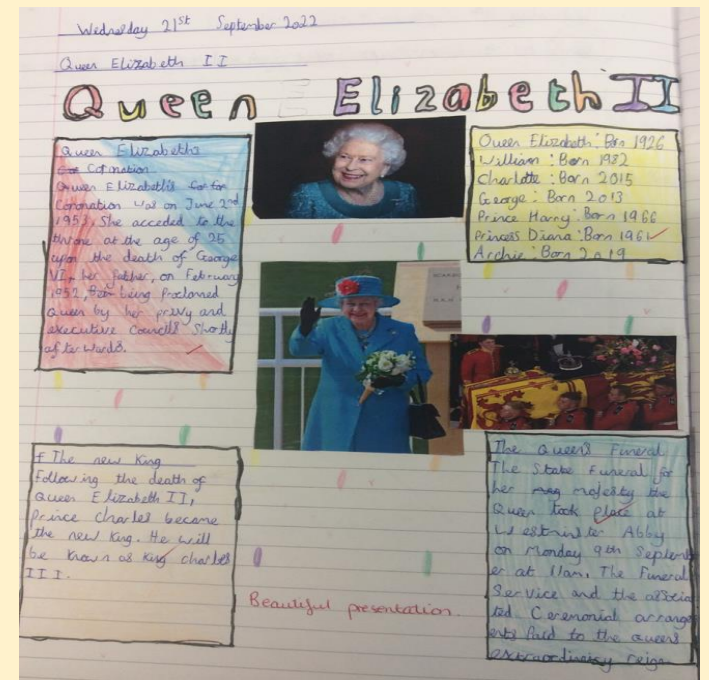 Wednesday 21st September 2022
Queen Elizabeth II
Queen Elizabeth II
Queen Elizabeths
Coronation
Queen Elizabeth's
Coronation was on June 2nd
1953, She acceded to the
throne at the age of 25
upon the death of George
VI, her father, on February
1952, being Proclamed
Queen by her privy and
executive Councils Shortly
afterwards.
Queen Elizabeth: Born 1926
William: Born 1982
Charlotte: Born 2015
George: Born 2013
Prince Harry: Born 1966
Princess Diana: Born 1961
Archie: Born 2019
The new King
Following the death of
Queen Elizabeth II,
Prince Charles became
the new King. He will
be known as King Charles
III.
The Queen's Funeral
The State Funeral for
her majesty the
Queen took place at
Westminster Abby
on Monday 9th Septemb
er at 11am, The Funeral
Service and the associa
ted Ceremonial arrang
ents Paid to the queens
extraordinary reign
Beautiful presentation.